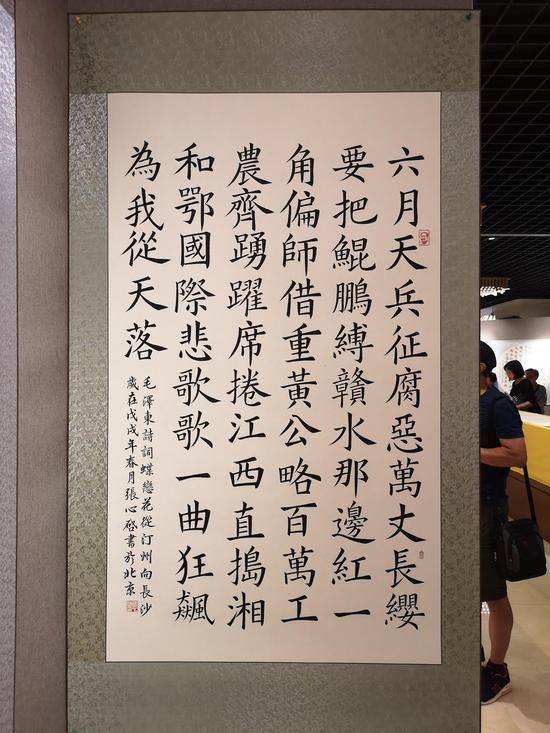 六月天兵征腐惡萬丈長纓
要把鯤鵬縛贛水那邊紅一
角偏師借重黃公略百萬工
農齊踴躍席捲江西直搗湘
和鄂國際悲歌歌一曲狂飆
為我從天落
毛澤東詩詞蝶戀花從汀州向長沙
歲在戊戌年春月張心啓書於北京